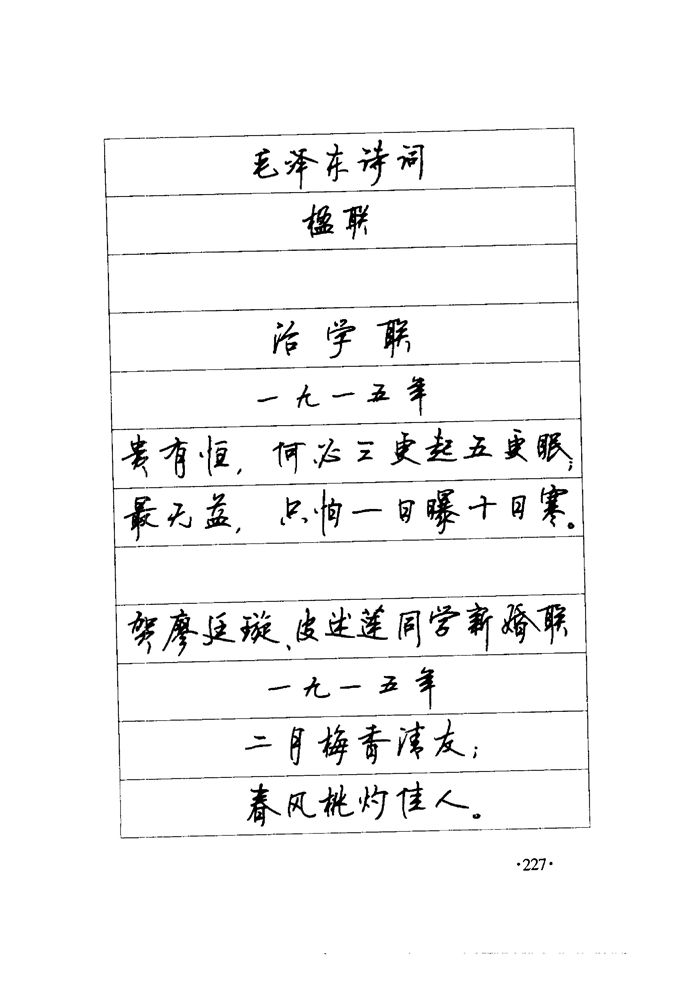 毛泽东诗词
楹联
治学联
一九一五年
贵有恒，何必三更起五更眠；
最无益，只怕一日曝十日寒。
贺廖廷璇、皮述莲同学新婚联
一九一五年
二月梅香清友；
春风桃灼佳人。
·227·